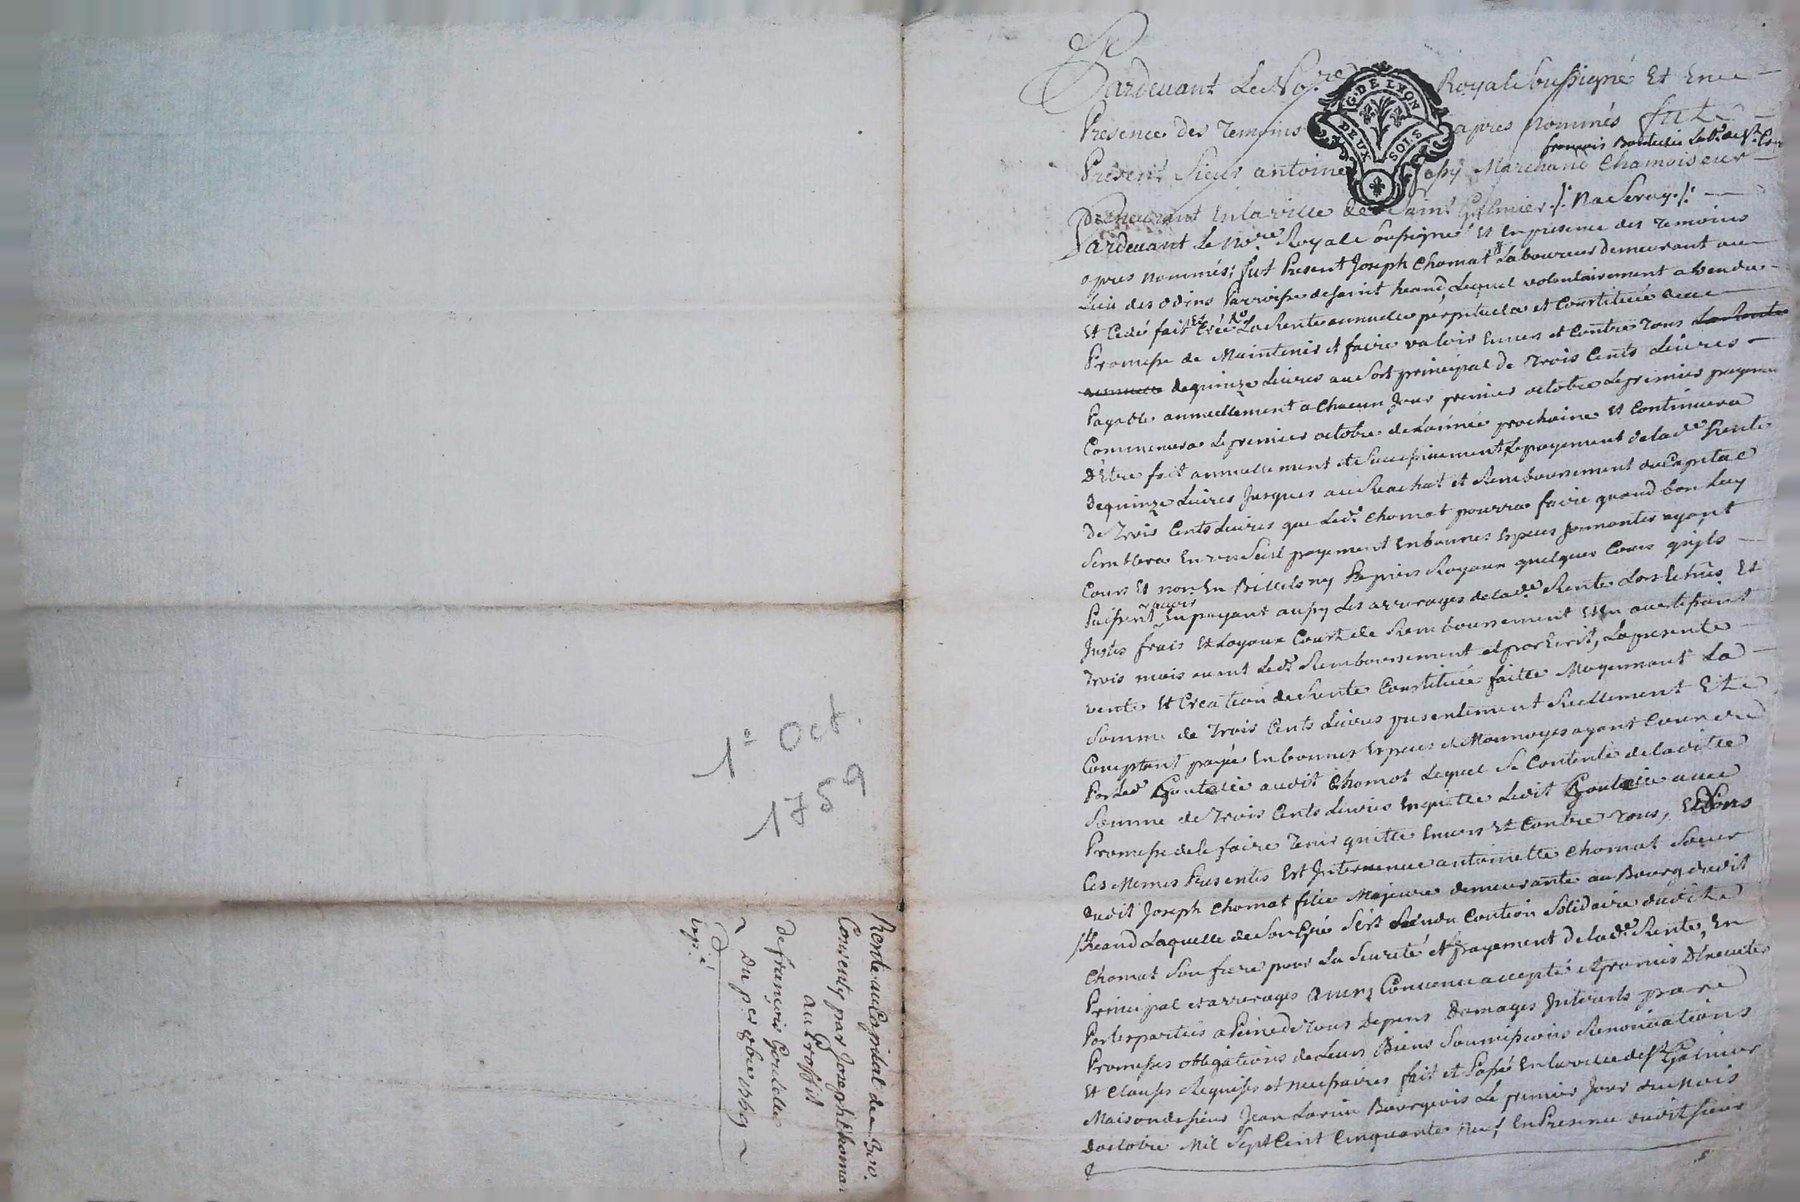 1e Oct.
1759
Rente au Capital de 300.
Consenty par Joseph Chomat
au Proffit
de françois Goutelle
Du per 8bre 1759
G. DE LYON
DEUX SOLS
Pardevant Le No.re Royal Soussigné Et En
Presence des Temoins apres Nommés fut
Present Sieur antoine Marchand Chamoiseur
françois
Demeurant En la ville de Saint Galmier
Pardevant Le No.re Royal Soussigné Et En presence des Temoins
apres nommés; fut Present Joseph Chomat Laboureur demeurant au
Lieu des odins Parroisse de saint heand, Lequel volontairement a vendu
Et Cedé fait Et Créé La Rente annuelle perpetuelle et Constituée avec
Promesse de Maintenir et faire valoir Envers et Contre Tous La Rente
annuelle de quinze Livres au Sort principal de Trois Cents Livres
Payable annuellement a Chacun Jour premier octobre Le premier payement
Commencera Le premier octobre de L'année prochaine Et Continuera
D'Etre fait annuellement et Successivement Le payement de lad.e Rente
de quinze Livres Jusques au Rachat et Remboursement du Capital
de Trois Cents Livres que Led.t Chomat pourra faire quand bon Luy
Semblera En un Seul payement En bonnes Especes Sonnantes ayant
Cours Et non En Billets ny Papiers Royaux quelques Cours qu'ils
Puissent avoir En payant aussy Les arrerages de lad.e Rente Lors Echus Et
Justes frais Et Loyaux Couts de Remboursement Et En avertissant
Trois mois avant Led.t Remboursement et par Ecrit, La presente
vente Et Creation de Rente Constituée faitte Moyennant La
Somme de Trois Cents Livres presentement Reellement Et
Comptant payée En bonnes Especes de Monnoyes ayant Cours
Par Led. Goutelle audit Chomat Lequel Se Contente de laditte
Somme de Trois Cents Livres En quitte Ledit Goutelle avec
Promesse de le faire Tenir quitte Envers Et Contre Tous, Et Dans
Ces Memes Presentes Est Intervenue antoinette Chomat Soeur
dudit Joseph Chomat fille Majeure demeurante au Bourg dudit
St heand Laquelle de Son Gré S'est Rendu Caution Solidaire dudit
Chomat Son frere pour La Seureté et payement de lad.e Rente, En
Principal et arrerages Convenu accepté et promis D'Executer
Par les parties a Peine de Tous Depens Domages Interets par
Promesses obligations de Leurs Biens Soumissions Renonciations
Et Clauses Requises et necessaires fait et Passé En la ville de St Galmier
Maison de sieur Jean Bourgeois Le premier Jour du mois
doctobre Mil Sept Cent Cinquante Neuf En Presence dudit sieur